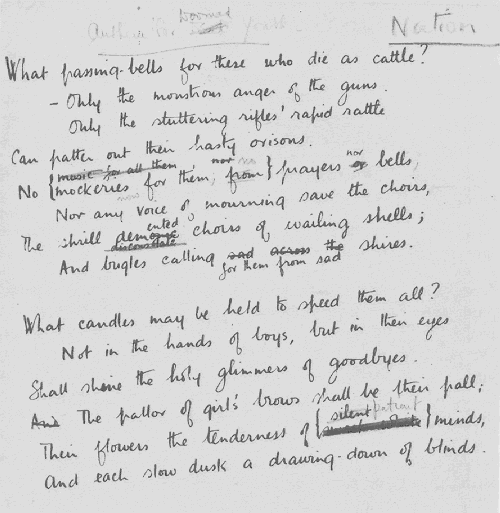 Anthem for Doomed Youth Nation
What passing-bells for these who die as cattle?
– Only the monstrous anger of the guns.
Only the stuttering rifles' rapid rattle
Can patter out their hasty orisons.
music for all them nor no
No { mockeries for them; from } prayers nor or bells,
Nor any voice of mourning save the choirs,
The shrill demonic ented disconsolate choirs of wailing shells;
And bugles calling sad across the shires.
for them from sad
What candles may be held to speed them all?
Not in the hands of boys, but in their eyes
Shall shine the holy glimmers of goodbyes.
And The pallor of girl's brows shall be their pall;
Their flowers the tenderness of { silent patient } minds,
And each slow dusk a drawing-down of blinds.